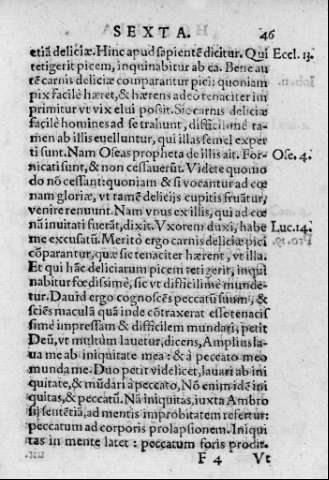 SEXTA. 46
etiã deliciæ. Hinc apud sapientẽ dicitur. Qui Eccl. 13.
tetigerit picem, inquinabitur ab ea. Bene au
tẽ carnis deliciæ comparantur pici: quoniam
pix facilè hæret, & hærens adeò tenaciter im
primitur vt vix elui possit. Sic carnis deliciæ
facilè homines ad se trahunt, difficilimè ta-
men ab illis euelluntur, qui illas semel exper
ti sunt. Nam Oseas propheta de illis ait. For- Ose. 4.
nicati sunt, & non cessauerũt. Videte quomo
do nõ cessant: quoniam & si vocantur ad cœ
nam gloriæ, vt tamẽ delicijs cupitis fruãtur,
venire renuunt. Nam vnus ex illis, qui ad cœ
nã inuitati fuerãt, dixit. Vxorem duxi, habe Luc. 14.
me excusatũ. Meritò ergo carnis deliciæ pici
cõparantur, quæ sic tenaciter hærent, vt illa.
Et qui hãc deliciarum picem tetigerit, inqui
nabitur fœdissimè, sic vt difficilimè munde-
tur. Dauid ergo cognoscẽs peccatũ suum, &
sciẽs maculã quã inde cõtraxerat esse tenacis
simè impressam & difficilem mundari, petit
Deũ, vt multùm lauetur, dicens, Ampliùs la-
ua me ab iniquitate mea: & à peccato meo
munda me. Duo petit videlicet, lauari ab ini
quitate, & mũdari à peccato, Nõ enim idẽ ini
quitas, & peccatũ. Nã iniquitas, iuxta Ambro
sij sentẽtiã, ad mentis improbitatem refertur:
peccatum ad corporis prolapsionem. Iniqui
tas in mente latet: peccatum foris prodit.
F 4 Vt